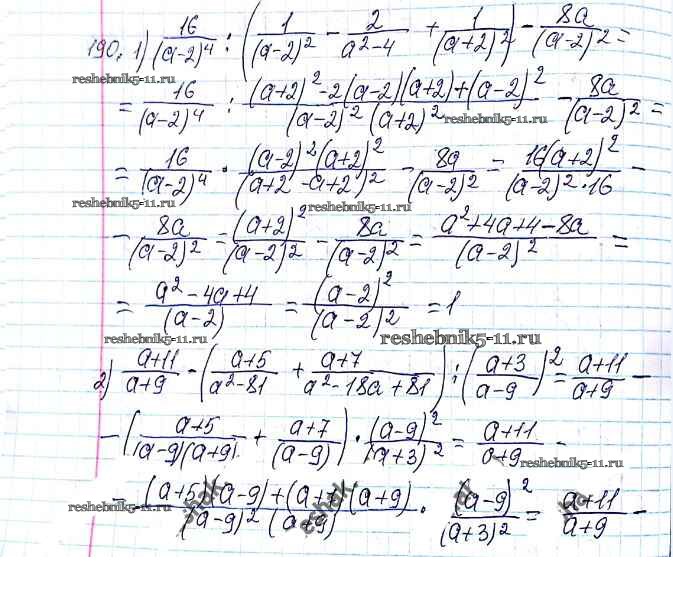 190. 1) 16/(a-2)^4 : (1/(a-2)^2 - 2/(a^2-4) + 1/(a+2)^2) - 8a/(a-2)^2 =
reshebnik5-11.ru
= 16/(a-2)^4 : ((a+2)^2-2(a-2)(a+2)+(a-2)^2)/((a-2)^2(a+2)^2) - 8a/(a-2)^2 =
reshebnik5-11.ru
= 16/(a-2)^4 · ((a-2)^2(a+2)^2)/(a+2-a+2)^2 - 8a/(a-2)^2 = 16(a+2)^2/((a-2)^2·16) -
reshebnik5-11.ru reshebnik5-11.ru
- 8a/(a-2)^2 = (a+2)^2/(a-2)^2 - 8a/(a-2)^2 = (a^2+4a+4-8a)/(a-2)^2 =
= (a^2-4a+4)/(a-2) = (a-2)^2/(a-2)^2 = 1
reshebnik5-11.ru reshebnik5-11.ru
2) (a+11)/(a+9) - ((a+5)/(a^2-81) + (a+7)/(a^2-18a+81)) : ((a+3)/(a-9))^2 = (a+11)/(a+9) -
- ((a+5)/((a-9)(a+9)) + (a+7)/(a-9)) · (a-9)^2/(a+3)^2 = (a+11)/(a+9) -
reshebnik5-11.ru
= - ((a+5)(a-9)+(a+7)(a+9))/((a-9)^2(a+9)) · (a-9)^2/(a+3)^2 = (a+11)/(a+9) -
reshebnik5-11.ru